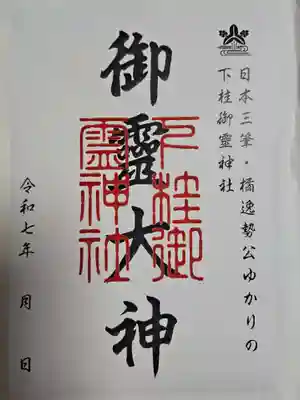 日本三筆・橘逸勢公ゆかりの
下桂御霊神社
御靈大神
下桂御
霊神社
令和七年　月　日